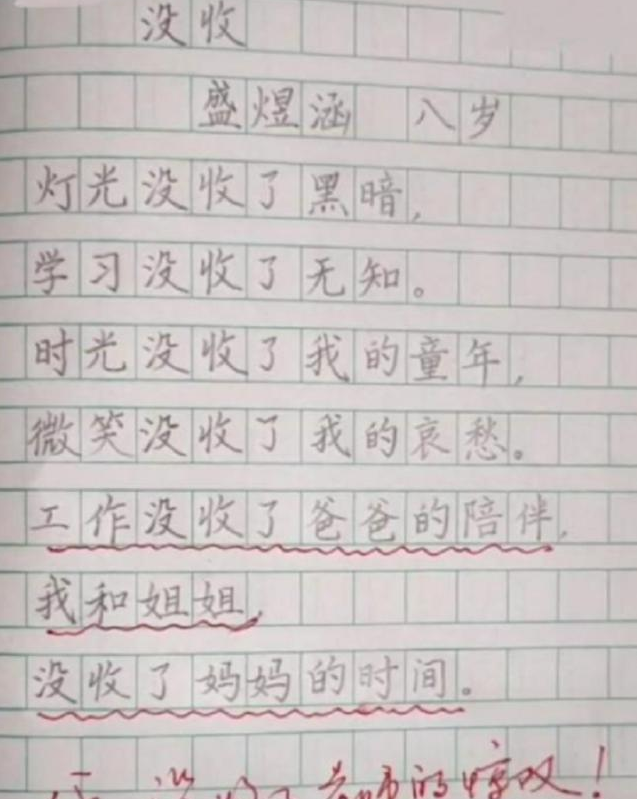 没收
盛煜涵 八岁
灯光没收了黑暗,
学习没收了无知。
时光没收了我的童年,
微笑没收了我的哀愁。
工作没收了爸爸的陪伴,
我和姐姐,
没收了妈妈的时间。
你没收了老师的惊叹!